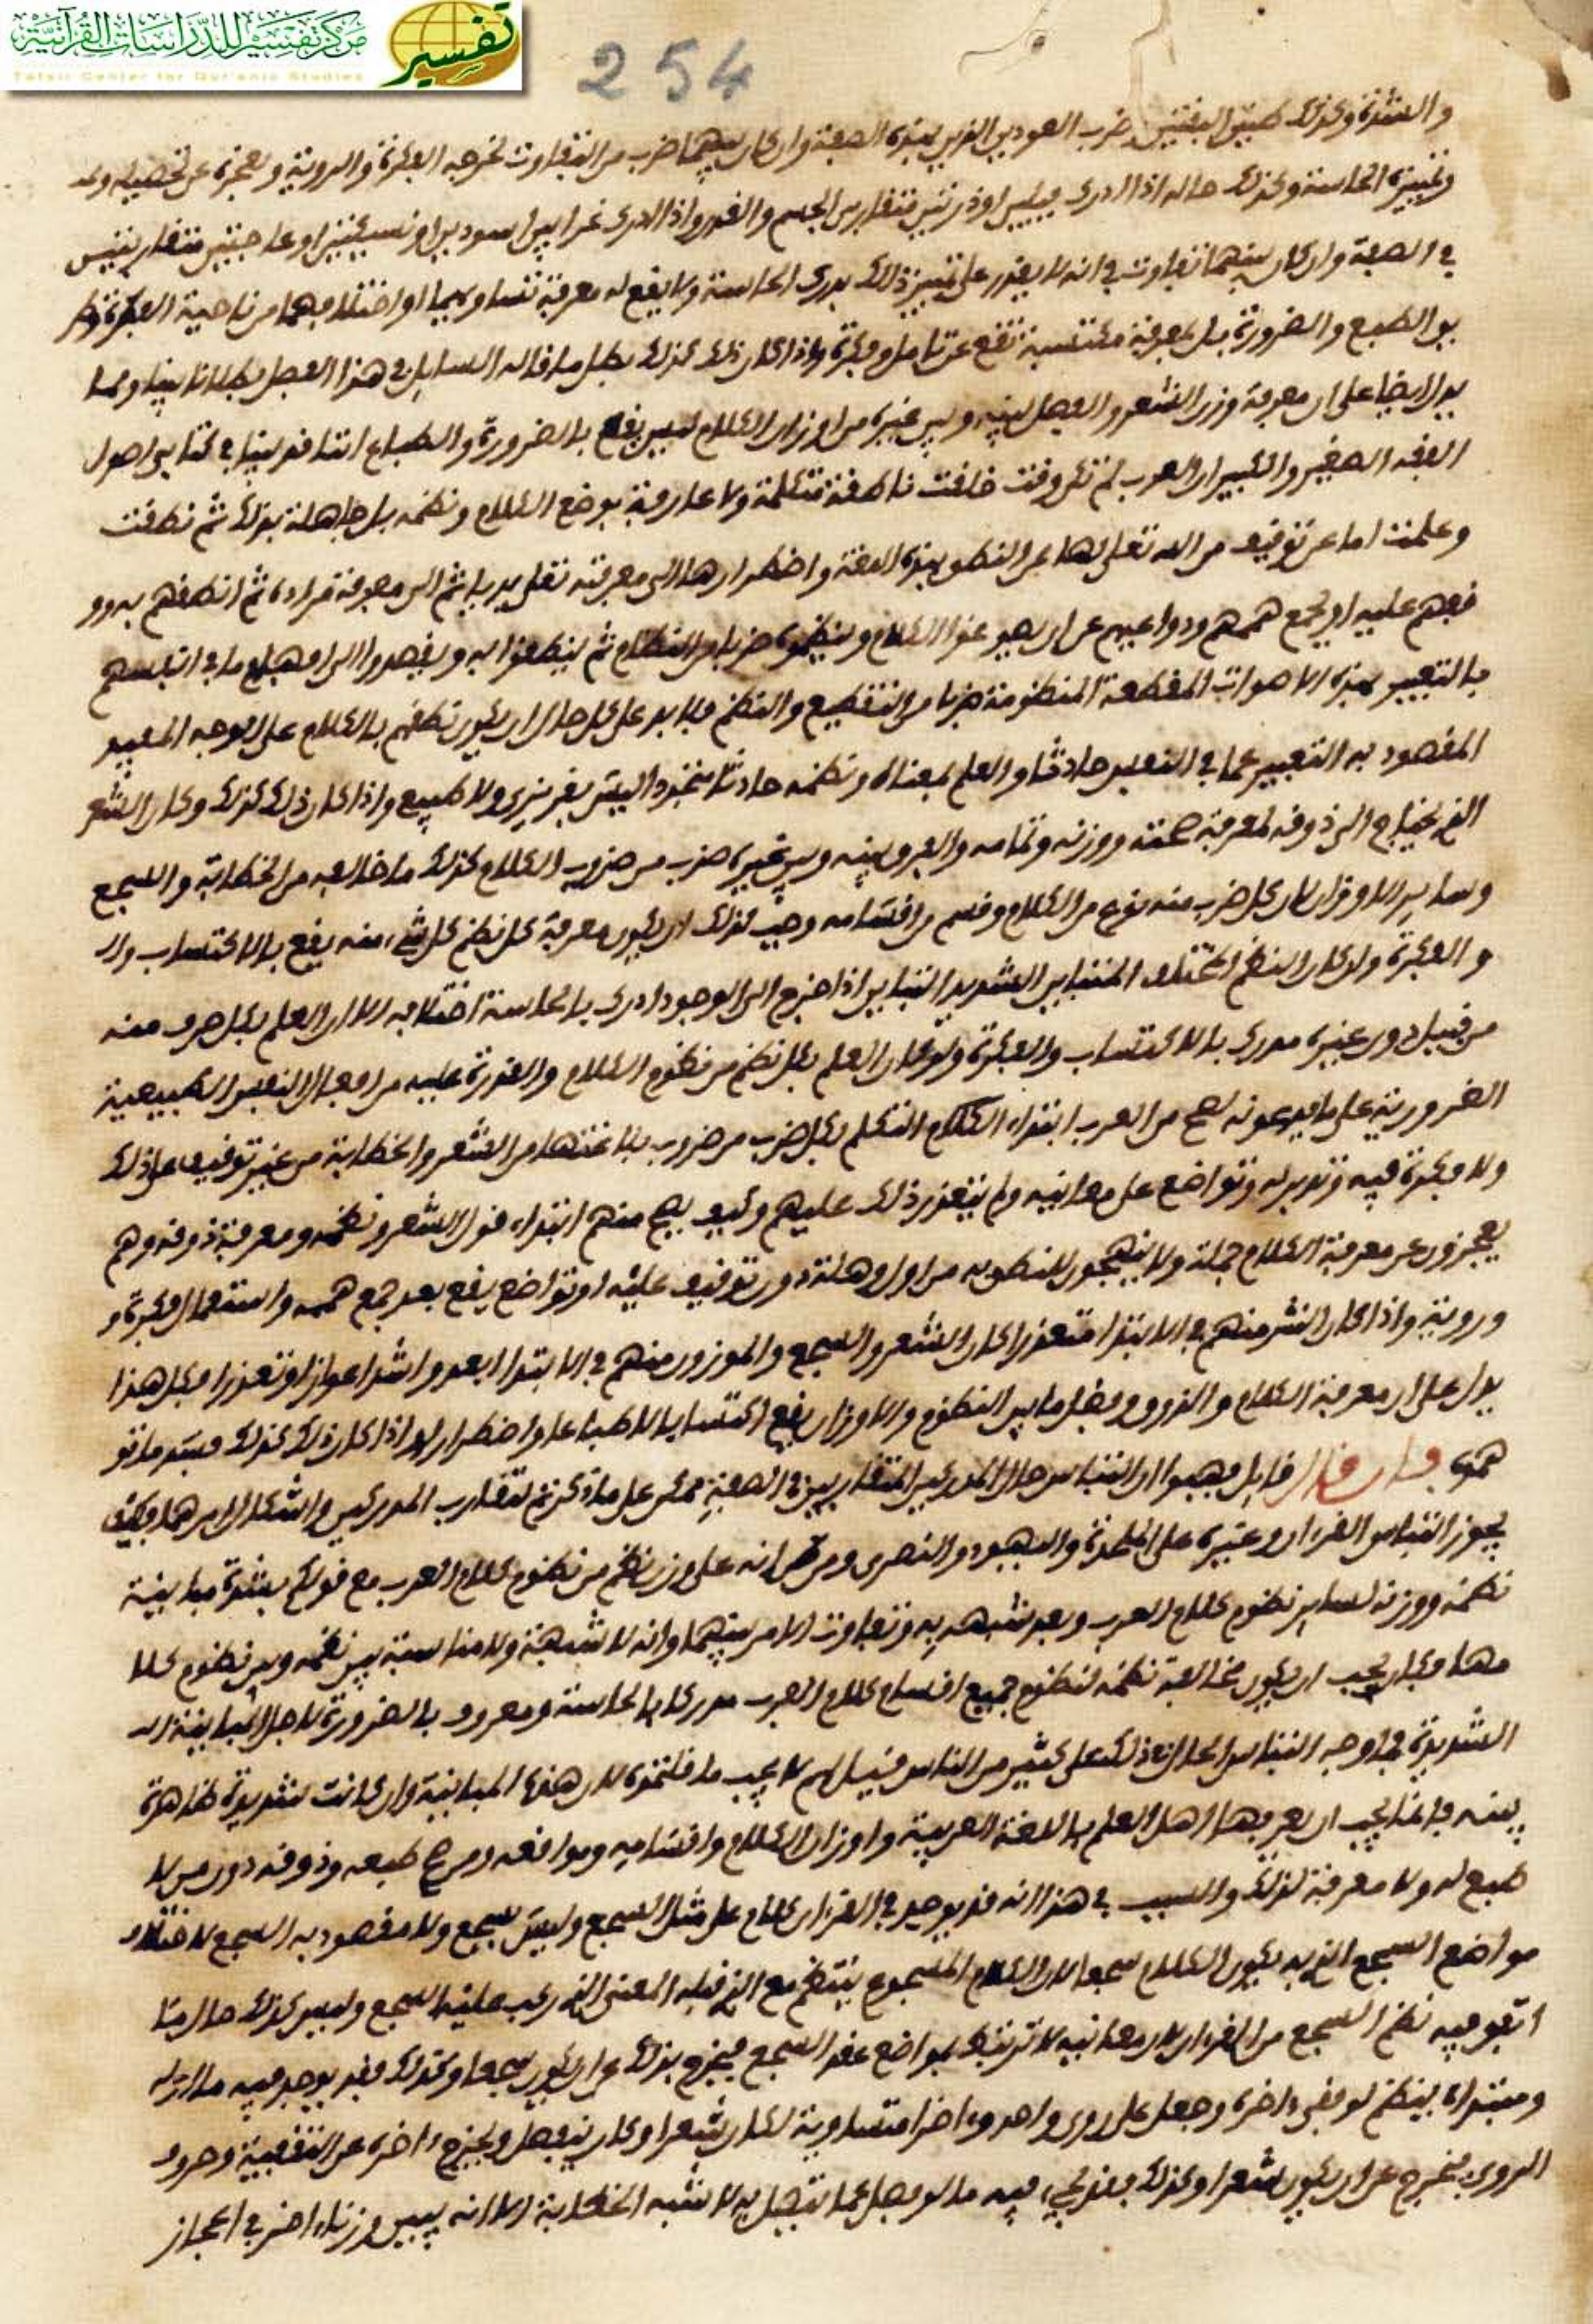 مركز تفسير للدراسات القرآنية
Tafsir Center for Qur'anic Studies
تفسير
254
والشدة وكذلك ضرب العودين الذين بهذه الصفة وان كان بينهما ضرب من التفاوت تخرجه الفكرة والروية ويعجز عن تحصيله
وتمييزه الحاسة وكذلك حاله اذا ادرك او ذرتين متقاربتي الجسم والقدر واذا ادرك غرابين اسودين او متقاربتين
في الصفة وان كان بينهما تفاوت في انه لا يقدر على تمييز ذلك بدرك الحاسة ولا يقع له معرفة تساويهما او اختلافهما من ناحية الفكرة
بل بمعرفة مكتسبة تقع عن تامل وفكرة واذا كان ذلك كذلك بطل ما قاله السايل في هذا الفصل بطلانا بينا ومما
يدل ايضا على ان معرفة وزن الشعر والفصل بينه وبين غيره من اوزان الكلام ليس يقع بالضرورة والطباع اننا قد بينا في كتابي اصول
الفقه الصغير والكبير ان العرب لم تكن وقت خلقت ناطقة متكلمة ولا عارفة بوضع الكلام ونظمه بل جاهلة بذلك ثم نطقت
وعلمت اما عن توقيف من الله تعلى لها على النطق بهذه اللغة واضطرارها الى معرفته ثم الى معرفة مراده ثم انطقهم به
عليه او بجمع هممهم ودواعيهم على ان الكلام وينظموه ضربا من النظام ثم ينطقوا به ويقصدوا الى افهام ما في انفسهم
بالتعبير بهذه الاصوات المقطعة المنظومة ضربا من التقطيع والنظم فلا بد على كل حال ان يكون نطقهم بالكلام على الوجه المفيد
المقصود به التعبير عما في النفس حادثا والعلم بمعناه ونظمه حادثا متجددا ليس بغريزي ولا طبيع واذا كان ذلك كذلك وكان الشعر
الذي يحتاج الى ذوقه لمعرفة صحته ووزنه وتمامه والفرق بينه وبين غيره ضرب من ضروب الكلام كذلك ما خالفه من الخطابة والسجع
وساير الاوزان كان كل ضرب منه نوع من الكلام وقسم من اقسامه وجب لذلك ان يكون معرفة كل نظم كل شيء منه يقع بالاكتساب
والفكرة ولو كان النظم المختلف المتباين الشديد التباين اذا خرج الى الوجود ادرك بالحاسة اختلافه الا ان العلم بكل حرف منه
من قبيل دون غيره مدرك بالاكتساب والفكرة ولو كان العلم بكل نظم من نظوم الكلام والقدرة عليه من افعال النفس الطبيعية
الضرورية على ما يدعونه لصح من العرب ابتداء الكلام التكلم بكل ضرب من ضروب بلاغتها من الشعر والخطابة من غير توقيف على ذلك
ولا فكرة فيه وتدبر له وتواضع على معانيه ولم يتعذر ذلك عليهم وكيف يصح منهم ابتداء قول الشعر ونظمه ومعرفة ذوقه وهم
يعجزون عن معرفة الكلام جملة ولا للنطق به من اول وهلة دون توقيف عليه او تواضع يقع بعد جمع هممه واستعمال فكرة و
وروية واذا كان النثر منهم في الابتدا متعذرا كان الشعر والسجع والموزون منهم في الابتدا ابعد واشد اعوازا وتعذرا فكل هذا
يدل على ان معرفة الكلام والذوق وفصل ما بين النظوم والاوزان يقع اكتسابا لا طباعا واضطرارا واذا كان ذلك كذلك فسد ما تو
همتموه فان قال قايل فهبوا ان التباس حال المدركين المتقاربين في الصفة ممكن على ما ذكرتم لتقارب المدركين واشكال امرهما فكيف
يجوز التباس القران وغيره على الملحدة واليهود والنصرى ومن ظن انه على وزن نظم من نظوم كلام العرب مع قولكم بشدة مباينة
نظمه ووزنه لساير نظوم كلام العرب وبعد شبهه به وتفاوت الامر بينهما وانه لا شبهة ولا مناسبة بين نظمه وبين نظوم كلا
مها فكان يجب ان يكون مخالفة نظمه لنظوم جميع اقسام كلام العرب مدركا بالحاسة ومعروف بالضرورة لاجل المباينة
الشديدة فما وجه التباس الحال في ذلك على كثير من الناس قيل لهم لا يجب ما قلتموه لان هذه المباينة وان كانت شديدة ظاهرة
بينة فانما يجب ان يعرفها اهل العلم باللغة العربية واوزان الكلام واقسامه ومواقعه ومن صح طبعه وذوقه دون من لا
طبع له ولا معرفة لذلك والسبب في هذا انه قد يوجد في القران كلام على مثال السجع وليس بسجع ولا مقصود به السجع لاختلاف
مواضع السجع الذي به يكون الكلام سجعا لان الكلام المسجوع ينتظم مع الذي قبله المعنى الذي ركب عليه السجع وليس كذلك حال ما
اتفق فيه نظم السجع من القران لان معانيه لا ترتبط بمواضع عقد السجع فيخرج بذلك عن ان يكون سجعا وكذلك فقد يوجد فيه ما
ومبتداه ينظم لو قفي واخره وجعل على روي واحد واخر متساوية لكان شعرا وكان ينفصل ويخرج اخره عن التقفية وحروف
الروي فيخرج عن ان يكون شعرا وكذلك فقد يجيء فيه ما لو فصل عما يتصل به لاشبه الخطابة الا انه يبين وزنا اخر في اعجاز